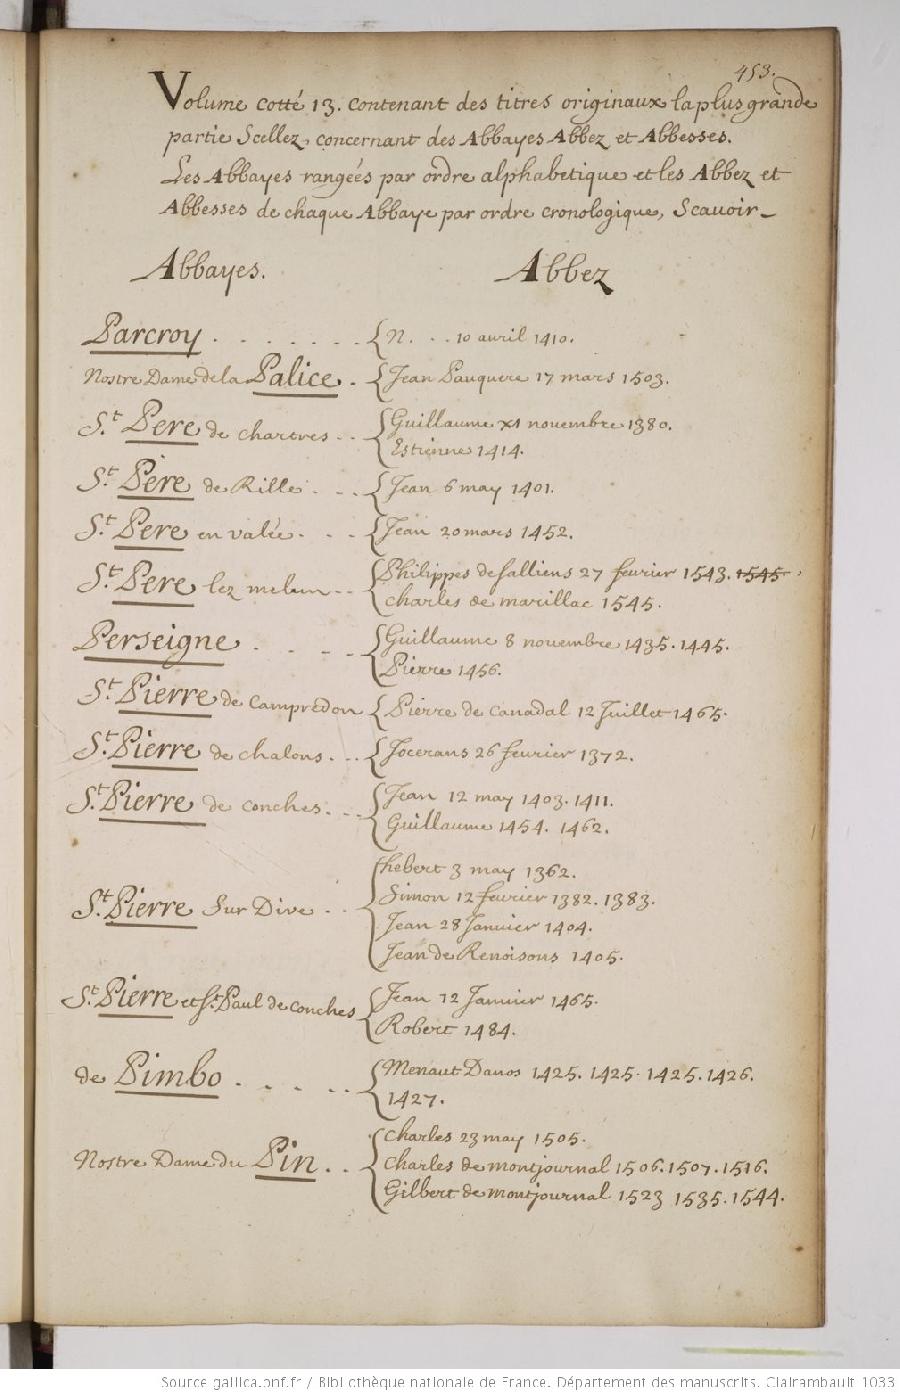 453.
Volume cotté 13. contenant des titres originaux la plus grande
partie Scellez, concernant des Abbayes Abbez et Abbesses.
Les Abbayes rangées par ordre alphabetique et les Abbez et
Abbesses de chaque Abbaye par ordre cronologique, Scavoir_
Abbayes. Abbez
Parcroy . . . . . . . { N. . . 10 avril 1410.
Nostre Dame de la Palice . { Jean Pauquere 17 mars 1503.
St. Pere de chartres . . { Guillaume x1 novembre 1380.
Estienne 1414.
St. Pere de Rille . . . { Jean 6 may 1401.
St. Pere en valée . . . { Jean 20 mars 1452.
St. Pere lez melun . . { Philippes de salliens 27 fevrier 1543. 1545
charles de marillac 1545.
Perseigne . . . . { Guillaume 8 novembre 1435. 1445.
Pierre 1456.
St. Pierre de Campredon { Pierre de Canadal 12 Juillet 1465.
St. Pierre de chalons . . { Jocerans 26 fevrier 1372.
St. Pierre de conches . . . { Jean 12 may 1403. 1411.
Guillaume 1454. 1462.
hebert 3 may 1362.
St. Pierre Sur Dive . . { Simon 12 fevrier 1382. 1383.
Jean 28 Janvier 1404.
Jean de Renoisons 1405.
St. Pierre et St. Paul de conches { Jean 12 Janvier 1465.
Robert 1484.
de Pimbo . . . . . { Menaut Davos 1425. 1425. 1425. 1426.
1427.
charles 23 may 1505.
Nostre Dame du Pin . . { charles de montjournal 1506. 1507. 1516.
Gilbert de montjournal 1523 1535. 1544.
Source gallica.bnf.fr / Bibliothèque nationale de France. Département des manuscrits. Clairambault 1033